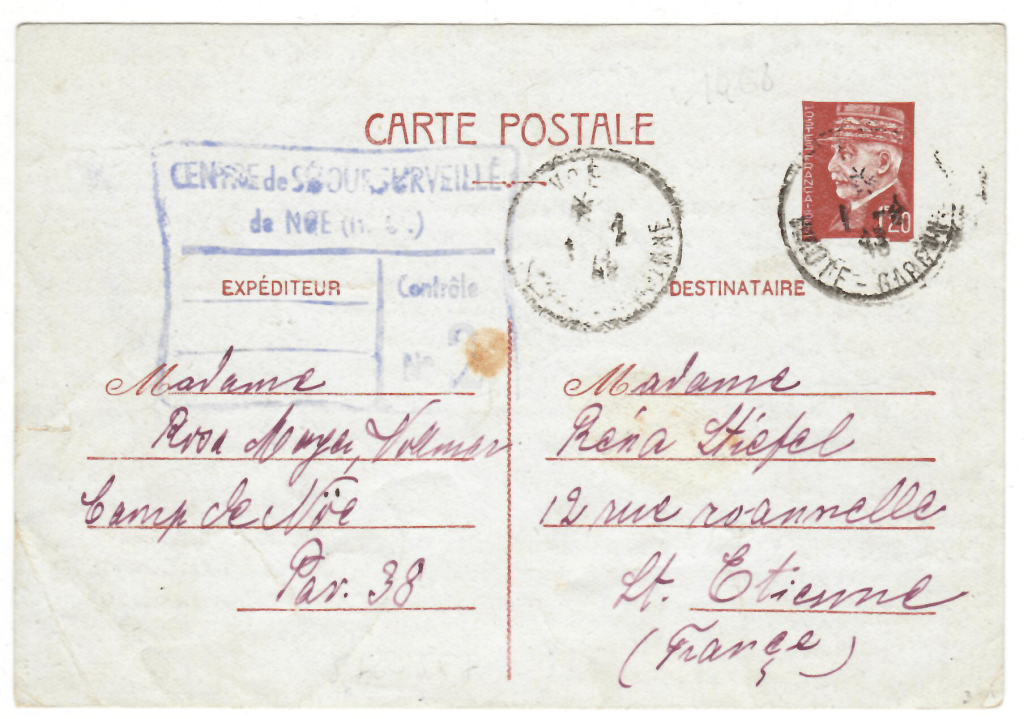 CARTE POSTALE
CENTRE de SÉJOUR SURVEILLÉ
de NOE
EXPÉDITEUR
Contrôle
No 2
NOE
1 2
43
POSTES FRANÇAISES
1F20
1 -2
43
HAUTE-GARONNE
DESTINATAIRE
Madame
Rosa Mayer, Vollmer
Camp de Nöe
Pav. 38
Madame
Réna Stiefel
12 rue roannelle
St. Etienne
(Françe)